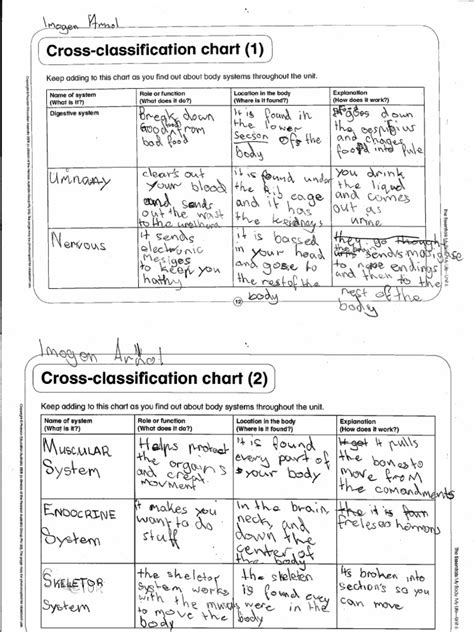 Imogen
Cross-classification chart (1)
Keep adding to this chart as you find out about body systems throughout the unit.
Name of system
(What is it?)
Role or function
(What does it do?)
Location in the body
(Where is it found?)
Explanation
(How does it work?)
Digestive system
Break down
food
bad food
it is found in
the lower
secson of the
body
goes down
the
and chages
food into fule
Urinary
clears out
your blood
and sends
out the wast
to the
it is found under
the Rib cage
and it has
the kidneys
you drink
the liquid
and comes
out as
urine
Nervous
it sends
electronic
Mesiges
to keep you
helthy
it is bassed
in your head
and gose to
the rest of the
body
they go though
sends
to endings
and then to the
rest of the
body
12
Imogen
Cross-classification chart (2)
Keep adding to this chart as you find out about body systems throughout the unit.
Name of system
(What is it?)
Role or function
(What does it do?)
Location in the body
(Where is it found?)
Explanation
(How does it work?)
MUSCULAR
System
Helps protect
the orgains
and creat
movment
it is found
every part of
your body
it pulls
the bones to
move from
the comandments
ENDOCRINE
System
it makes you
want to do
stuff
In the brain,
neck and
down the
center of
the body
the it is from
hormons
SKELETOR
System
the skeletor
system works
with the
to move the body
the skeleton
is found evey
were in the
body
is broken into
sections so you
can move